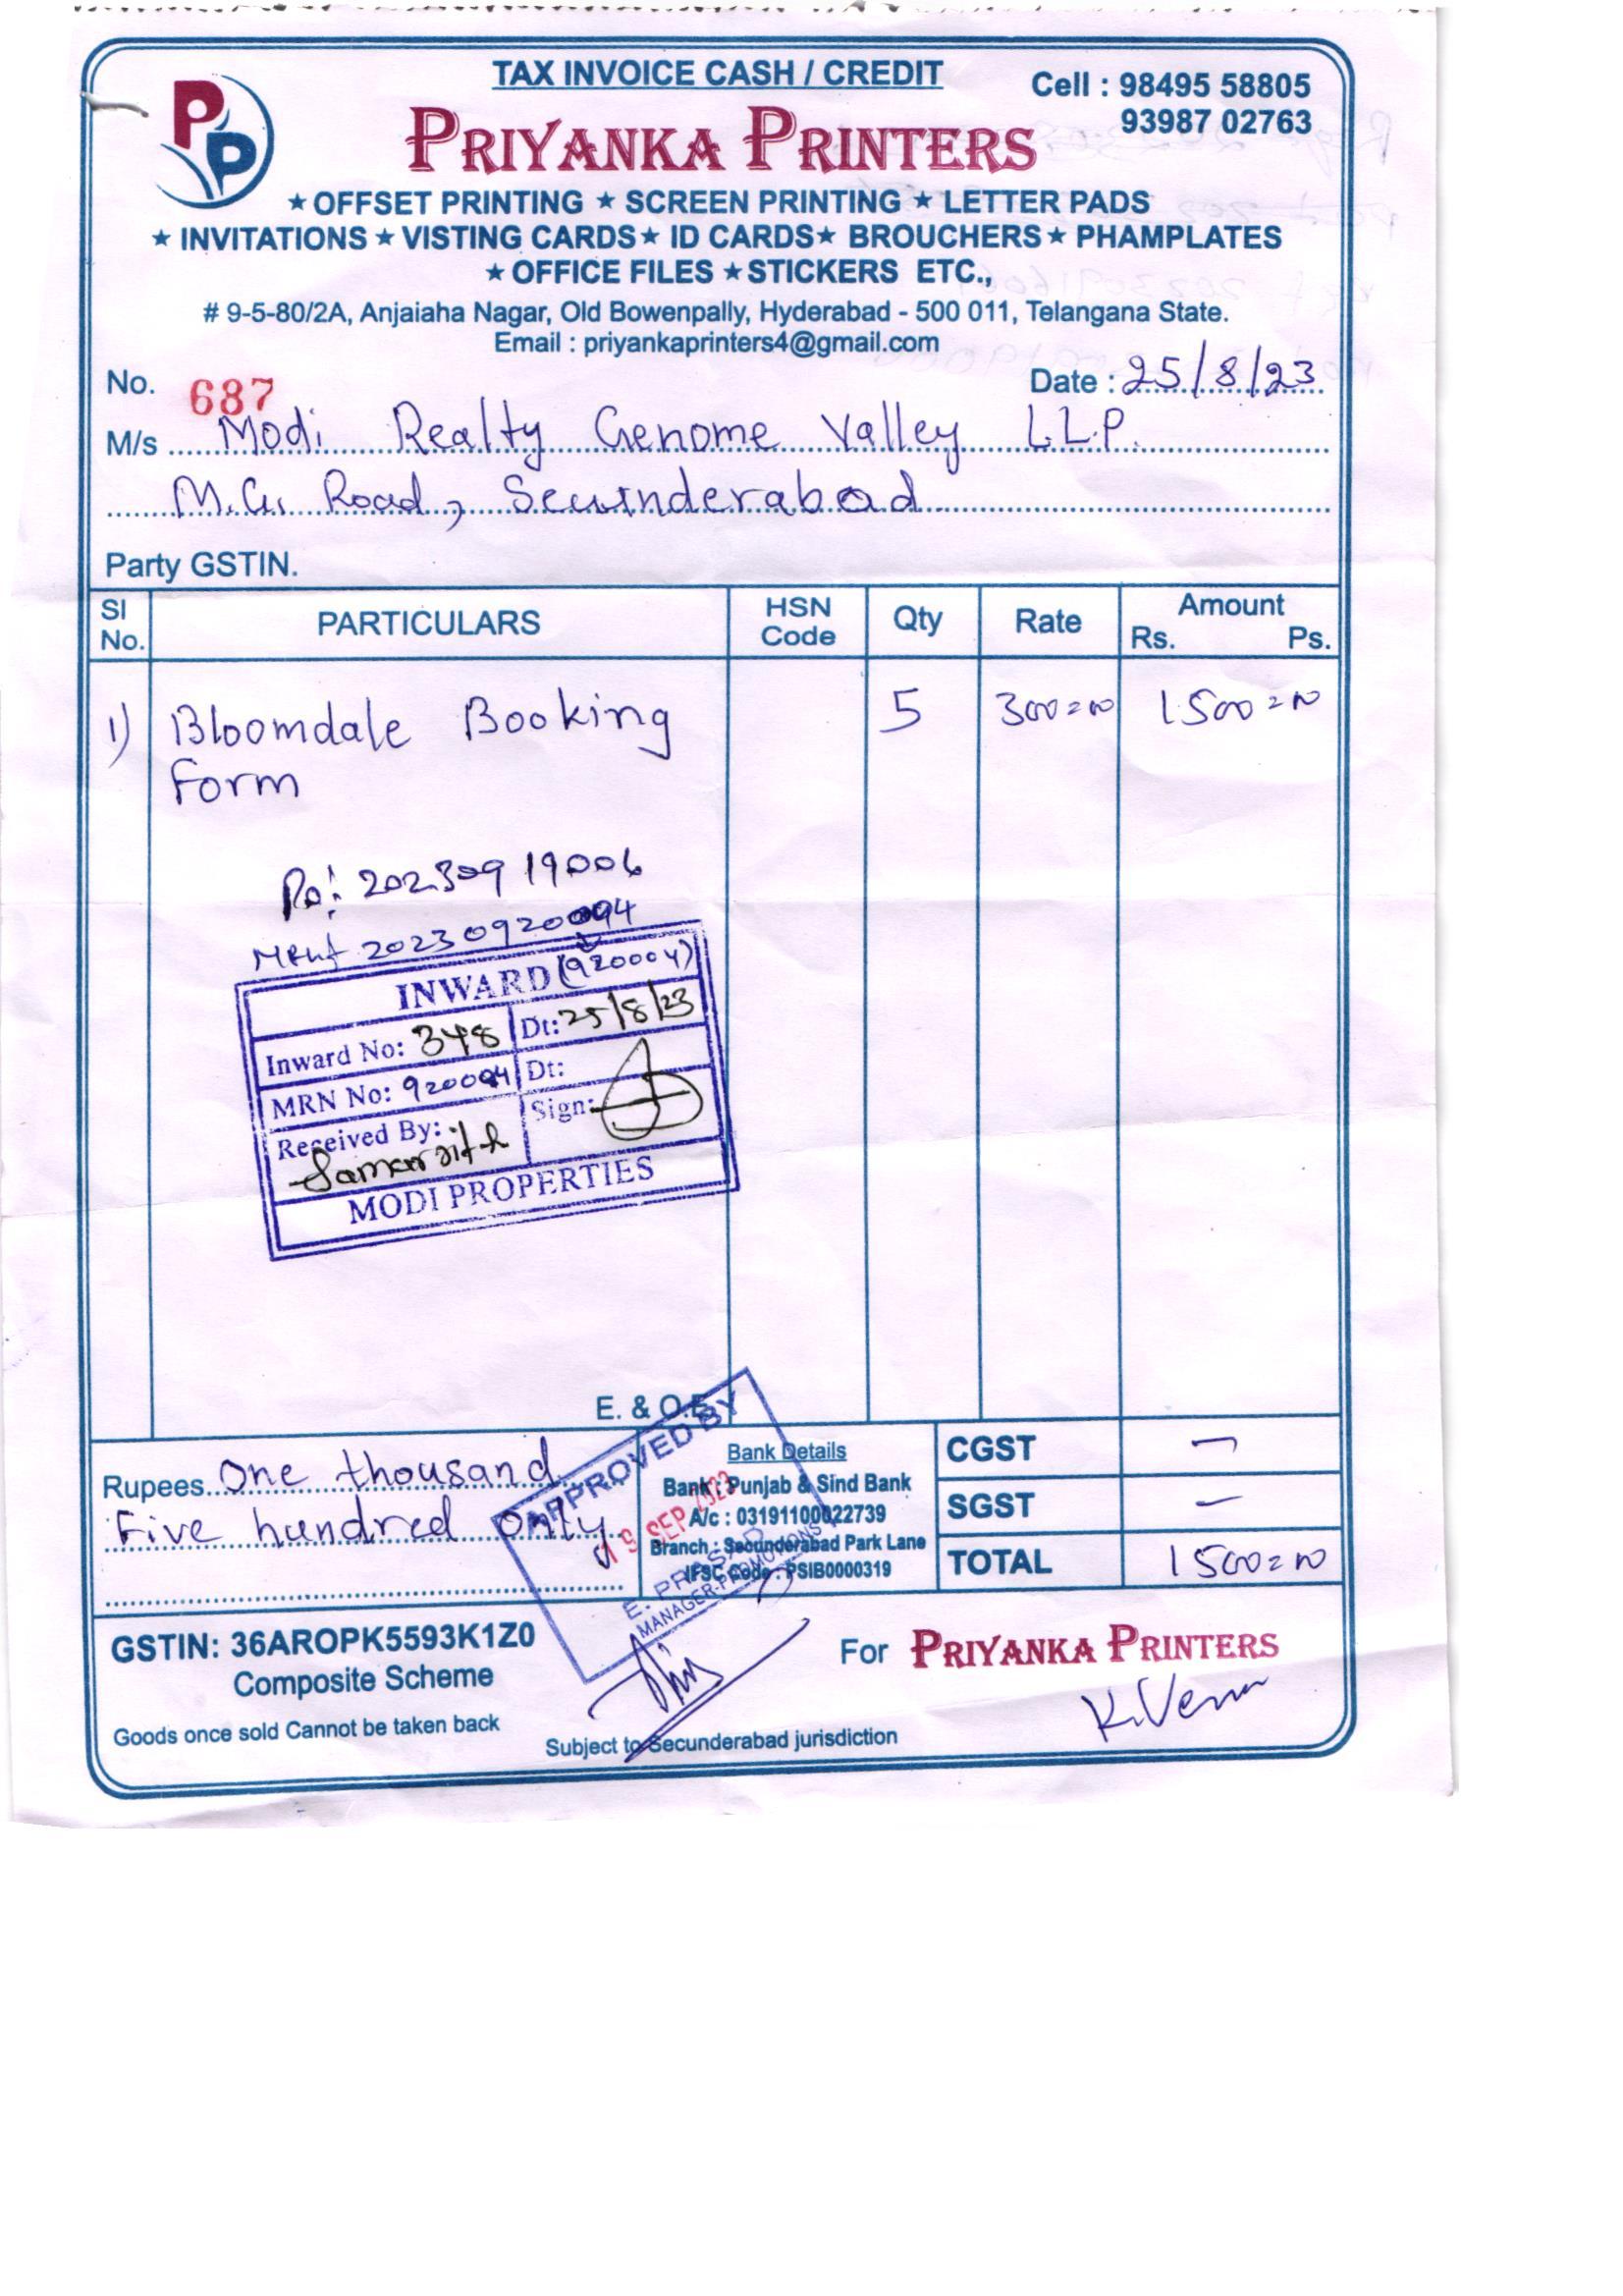 TAX INVOICE CASH / CREDIT
Cell : 98495 58805
93987 02763
PP
PRIYANKA PRINTERS
★ OFFSET PRINTING ★ SCREEN PRINTING ★ LETTER PADS
★ INVITATIONS ★ VISTING CARDS ★ ID CARDS ★ BROUCHERS ★ PHAMPLATES
★ OFFICE FILES ★ STICKERS ETC.,
# 9-5-80/2A, Anjaiaha Nagar, Old Bowenpally, Hyderabad - 500 011, Telangana State.
Email : priyankaprinters4@gmail.com
No. 687 Date : 25/8/23
M/s Modi Realty Genome Valley L.L.P.
M.G. Road, Secunderabad
Party GSTIN.
Sl No. PARTICULARS HSN Code Qty Rate Amount Rs. Ps.
1) Bloomdale Booking 5 300=00 1500=00
Form
Po: 20230919006
20230920004
INWARD (920004)
Inward No: 348 Dt: 25/8/23
MRN No: 920004 Dt:
Received By: Sign:
MODI PROPERTIES
E. & O.E
Rupees One thousand
Five hundred only
APPROVED BY
19 SEP 2023
E. PRASAD
MANAGER-PROMOTIONS
Bank Details
Bank : Punjab & Sind Bank
A/c : 03191100022739
Branch : Secunderabad Park Lane
IFSC Code : PSIB0000319
CGST —
SGST —
TOTAL 1500=00
GSTIN: 36AROPK5593K1Z0
Composite Scheme
For PRIYANKA PRINTERS
Goods once sold Cannot be taken back
Subject to Secunderabad jurisdiction